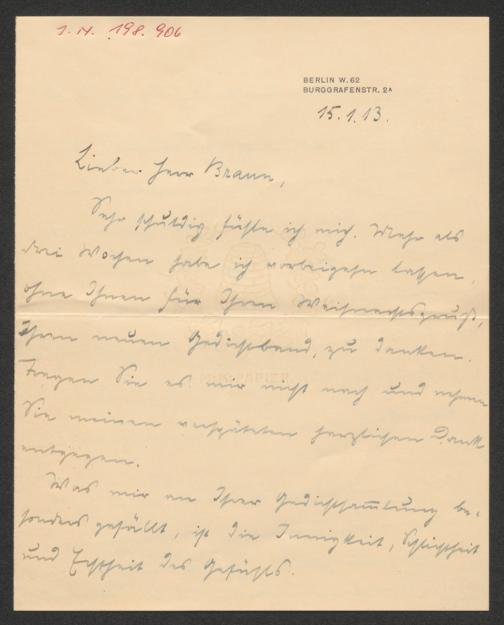 I. N. 198.906
BERLIN W. 62
BURGGRAFENSTR. 2A
15.1.13.
Lieber Herr Braun,
Sehr schuldig fühle ich mich. Mehr als
drei Wochen habe ich vorbeigehn lassen,
ohne Ihnen für Ihren Weihnachtsgruß,
Ihren neuen Gedichtband, zu danken.
Tragen Sie es mir nicht nach und nehmen
Sie meinen verspäteten herzlichen Dank
entgegen.
Was mir an Ihrer Gedichtsammlung be-
sonders gefällt, ist die Innigkeit, Schlichtheit
und Echtheit des Gefühls.